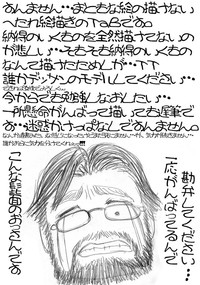 すんません…まともな絵の描けない
へたれ絵描きのTABでする
納得のいくものを全然描けてないの
が悲しい…そもそも納得のいくもの
なんて描けたためしが…TT
誰かデッサンのモデルしてください…
今からでも勉強しなおしたい…
一所懸命がんばって描いても遅筆で
す…迷惑かけっぱなしですんません。
勘弁してください…
一応がんばってるんで
こんな髭面のおっさんです